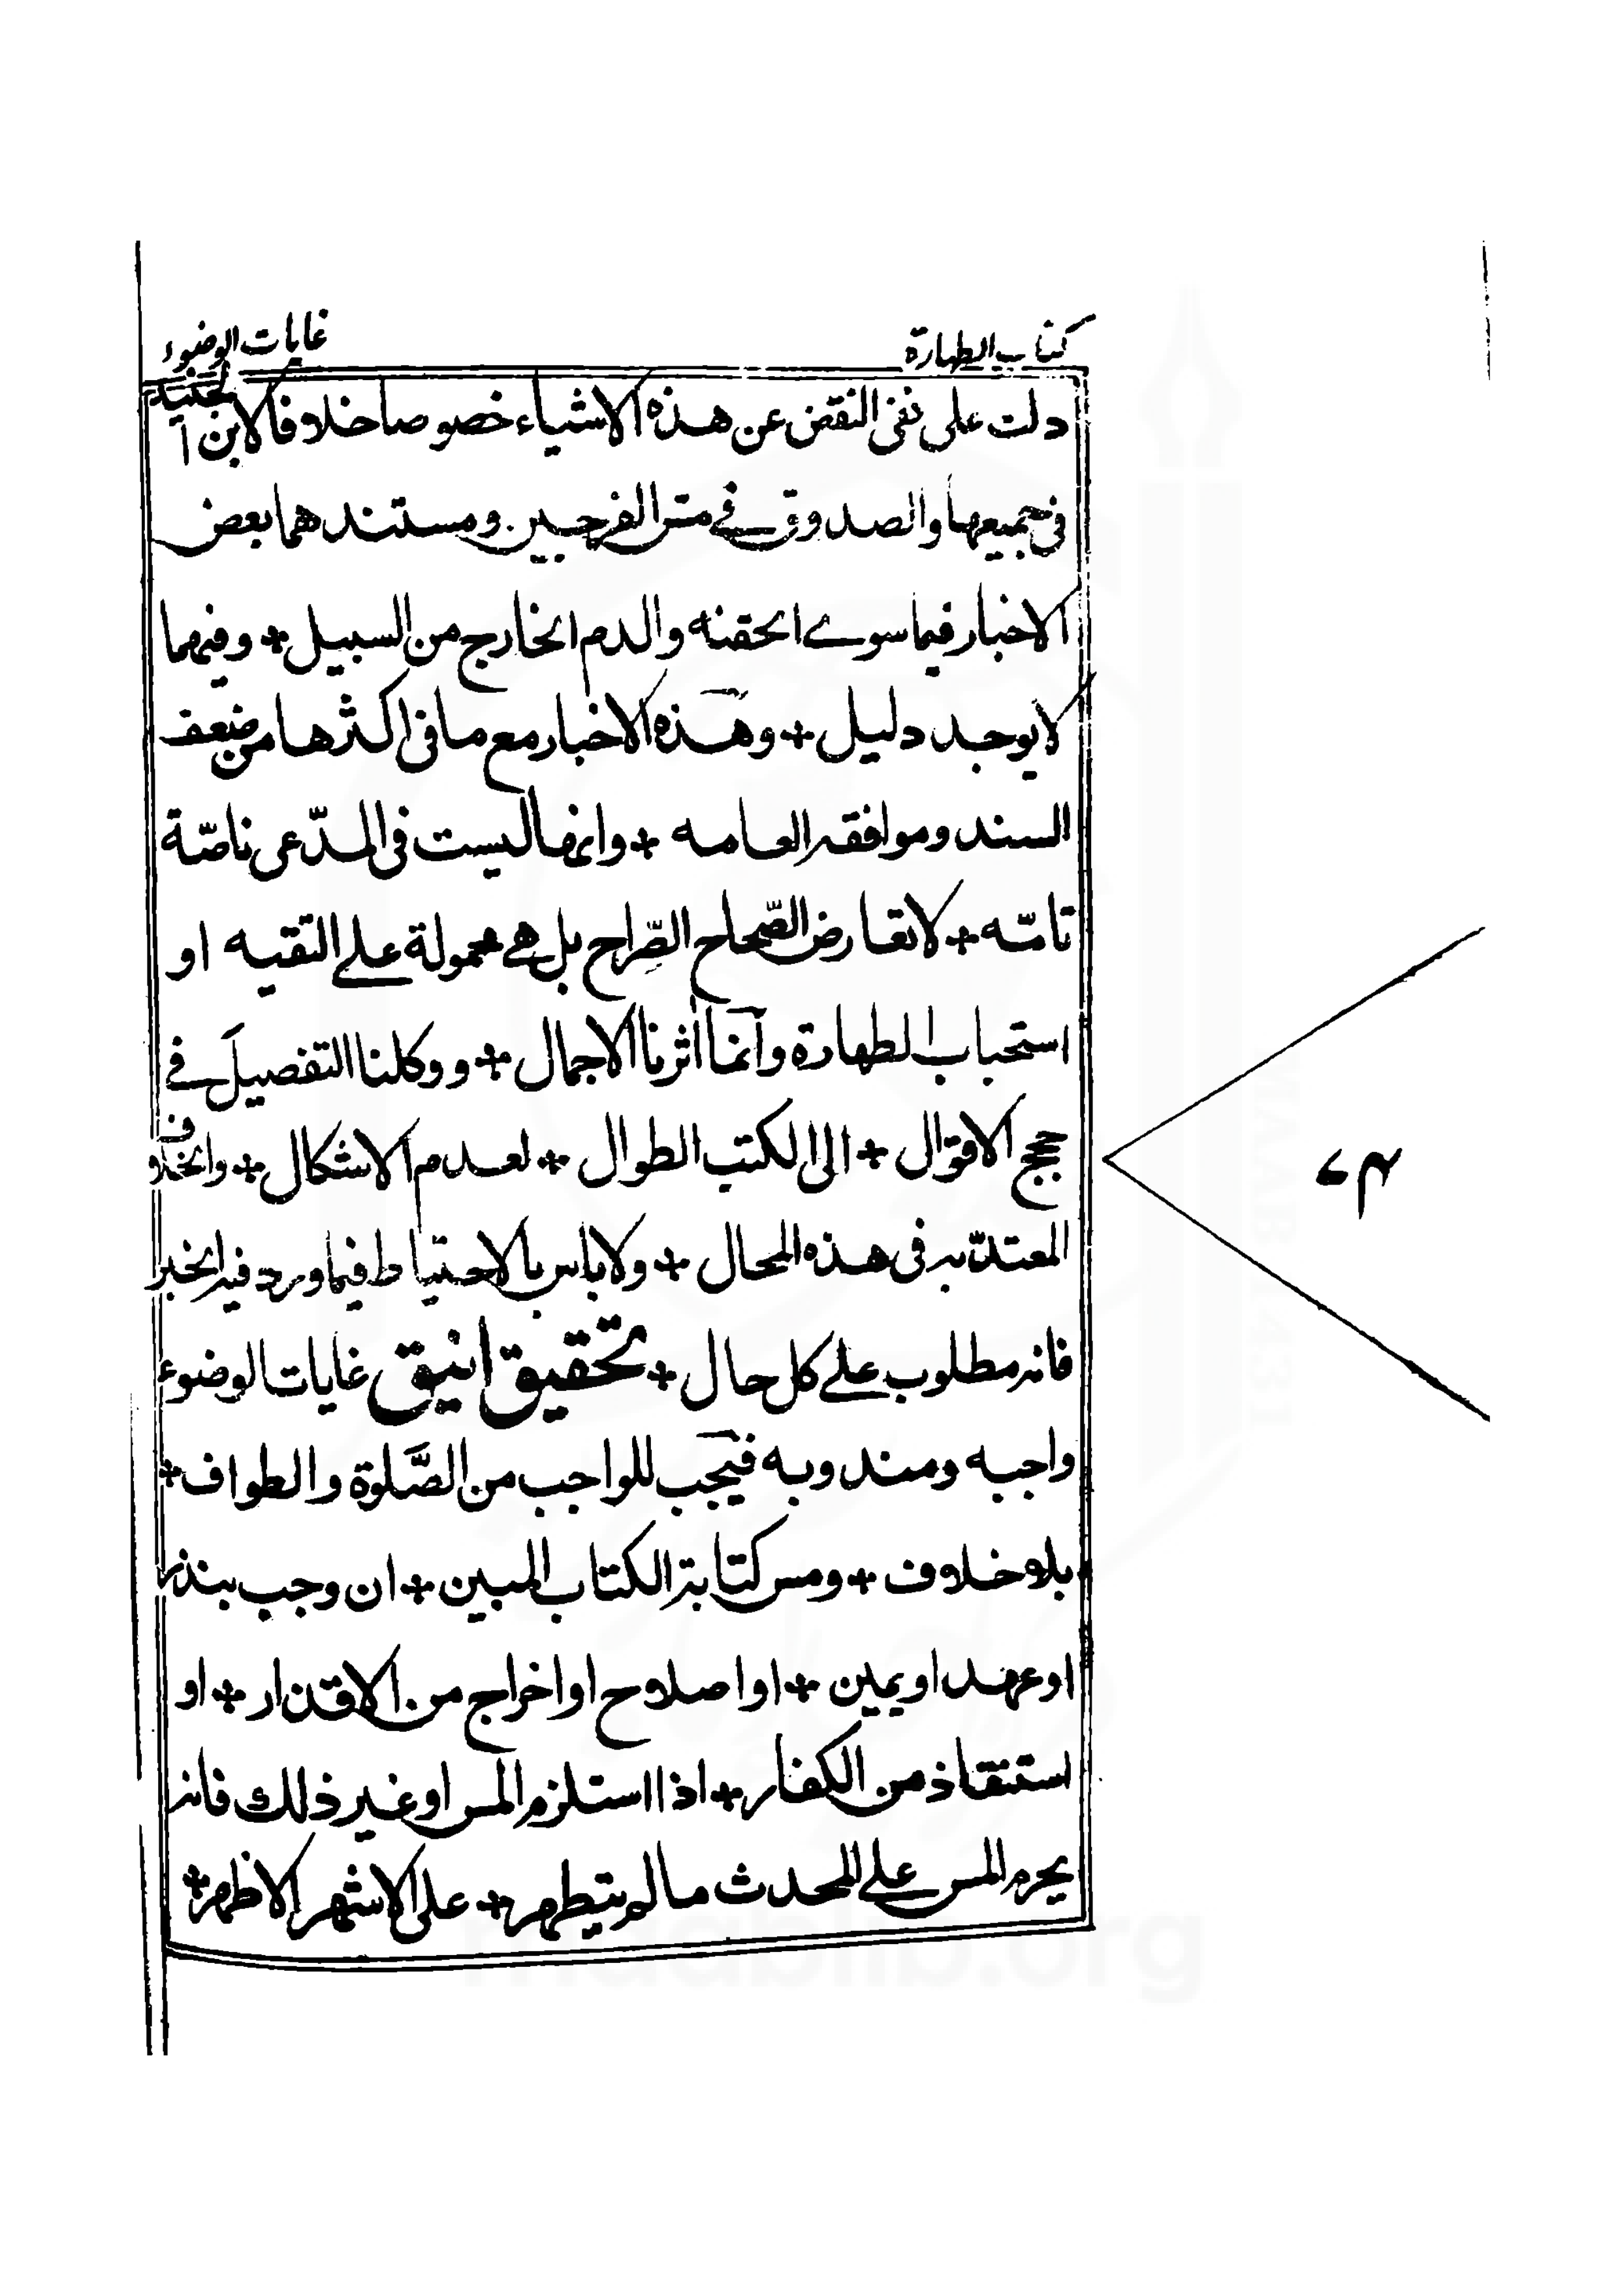 كتاب الطهارة
غايات الوضوء
دلت على نفى النقض عن هذه الاشياء خصوصا خلافا لابن الجنيد
فى جميعها والصدوق فے مسّ الفرجين ومستندهما بعض
الاخبار فيما سوے الحقنه والدم الخارج من السبيل + وفيهما
لا يوجد دليل + وهذه الاخبار مع ما فى اكثرها من ضعف
السند وموافقه العامه + وانها ليست فى المدّعى ناصّة
تامّه + لا تعارض الصّحاح الصّراح بل هے محمولة علے التقيه او
استحباب الطهارة وانما اثرنا الاجمال + ووكلنا التفصيل فے
حجج الاقوال + الى الكتب الطوال + لعدم الاشكال + والخلاف
المعتدّ به فى هذه المحال + ولا باس بالاحتياط فيما ورد فيه الخبر
فانه مطلوب علے كل حال + تحقيق انيق غايات الوضوء
واجبه ومندوبه فيجب للواجب من الصّلوة والطواف +
بلا خلاف + ومس كتابة الكتاب المبين + ان وجب بنذر
او عهد او يمين + او اصلاح او اخراج من الاقذار + او
استنقاذ من الكفار + اذا استلزم المس او غير ذلك فانه
يحرم المس علے المحدث ما لم يتطهر + على الاشهر الاظهر +
maablib.org